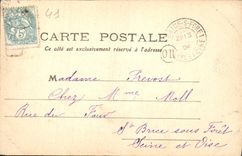 41
CARTE POSTALE
Ce côté est exclusivement réservé à l'adresse
OR
Madame Prevost
Chez Mme Moll
Rue du Four
St Brice sous Forêt
Seine et Oise